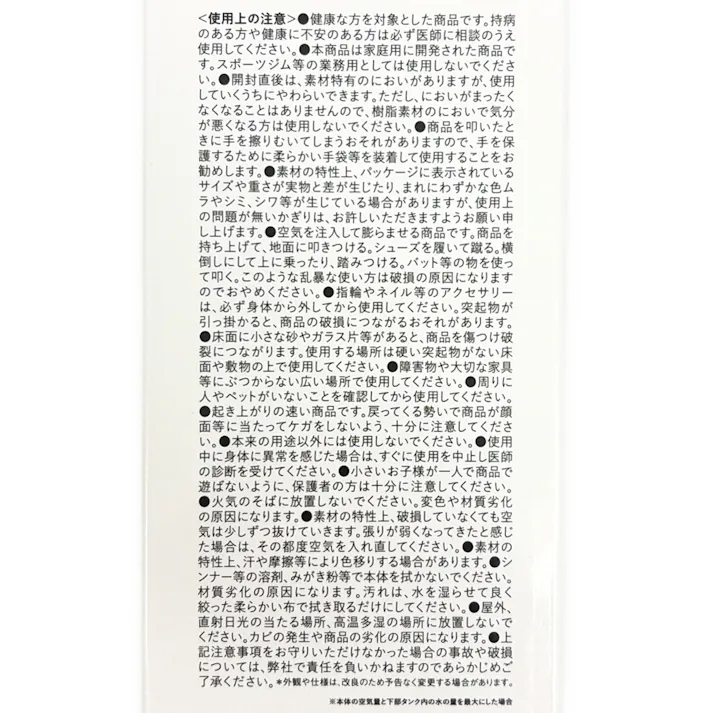 <使用上の注意>●健康な方を対象とした商品です。持病
のある方や健康に不安のある方は必ず医師に相談のうえ
使用してください。●本商品は家庭用に開発された商品で
す。スポーツジム等の業務用としては使用しないでくださ
い。●開封直後は、素材特有のにおいがありますが、使用
していくうちにやわらいできます。ただし、においがまったく
なくなることはありませんので、樹脂素材のにおいで気分
が悪くなる方は使用しないでください。●商品を叩いたと
きに手を擦りむいてしまうおそれがありますので、手を保
護するために柔らかい手袋等を装着して使用することをお
勧めします。●素材の特性上、パッケージに表示されている
サイズや重さが実物と差が生じたり、まれにわずかな色ム
ラやシミ、シワ等が生じている場合がありますが、使用上
の問題が無いかぎりは、お許しいただきますようお願い申
し上げます。●空気を注入して膨らませる商品です。商品を
持ち上げて、地面に叩きつける。シューズを履いて蹴る。横
倒しにして上に乗ったり、踏みつける。バット等の物を使っ
て叩く。このような乱暴な使い方は破損の原因になります
のでおやめください。●指輪やネイル等のアクセサリー
は、必ず身体から外してから使用してください。突起物が
引っ掛かると、商品の破損につながるおそれがあります。
●床面に小さな砂やガラス片等があると、商品を傷つけ破
裂につながります。使用する場所は硬い突起物がない床
面や敷物の上で使用してください。●障害物や大切な家具
等にぶつからない広い場所で使用してください。●周りに
人やペットがいないことを確認してから使用してください。
●起き上がりの速い商品です。戻ってくる勢いで商品が顔
面等に当たってケガをしないよう、十分に注意してくださ
い。●本来の用途以外には使用しないでください。●使用
中に身体に異常を感じた場合は、すぐに使用を中止し医師
の診断を受けてください。●小さいお子様が一人で商品で
遊ばないように、保護者の方は十分に注意してください。
●火気のそばに放置しないでください。変色や材質劣化
の原因になります。●素材の特性上、破損していなくても空
気は少しずつ抜けていきます。張りが弱くなってきたと感じ
た場合は、その都度空気を入れ直してください。●素材の
特性上、汗や摩擦等により色移りする場合があります。●シ
ンナー等の溶剤、みがき粉等で本体を拭かないでください。
材質劣化の原因になります。汚れは、水を湿らせて良く
絞った柔らかい布で拭き取るだけにしてください。●屋外、
直射日光の当たる場所、高温多湿の場所に放置しないで
ください。カビの発生や商品の劣化の原因になります。●上
記注意事項をお守りいただけなかった場合の事故や破損
については、弊社で責任を負いかねますのであらかじめご
了承ください。*外観や仕様は、改良のため予告なく変更する場合があります。
※本体の空気量と下部タンク内の水の量を最大にした場合